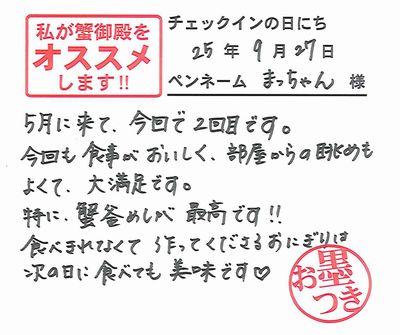 私が蟹御殿を
オススメ
します!!
チェックインの日にち
25年9月27日
ペンネーム まっちゃん 様
5月に来て、今回で2回目です。
今回も食事がおいしく、部屋からの眺めも
よくて、大満足です。
特に、蟹釜めしが最高です!!
食べきれなくて作ってくださるおにぎりは
次の日に食べても美味です♡
お墨つき